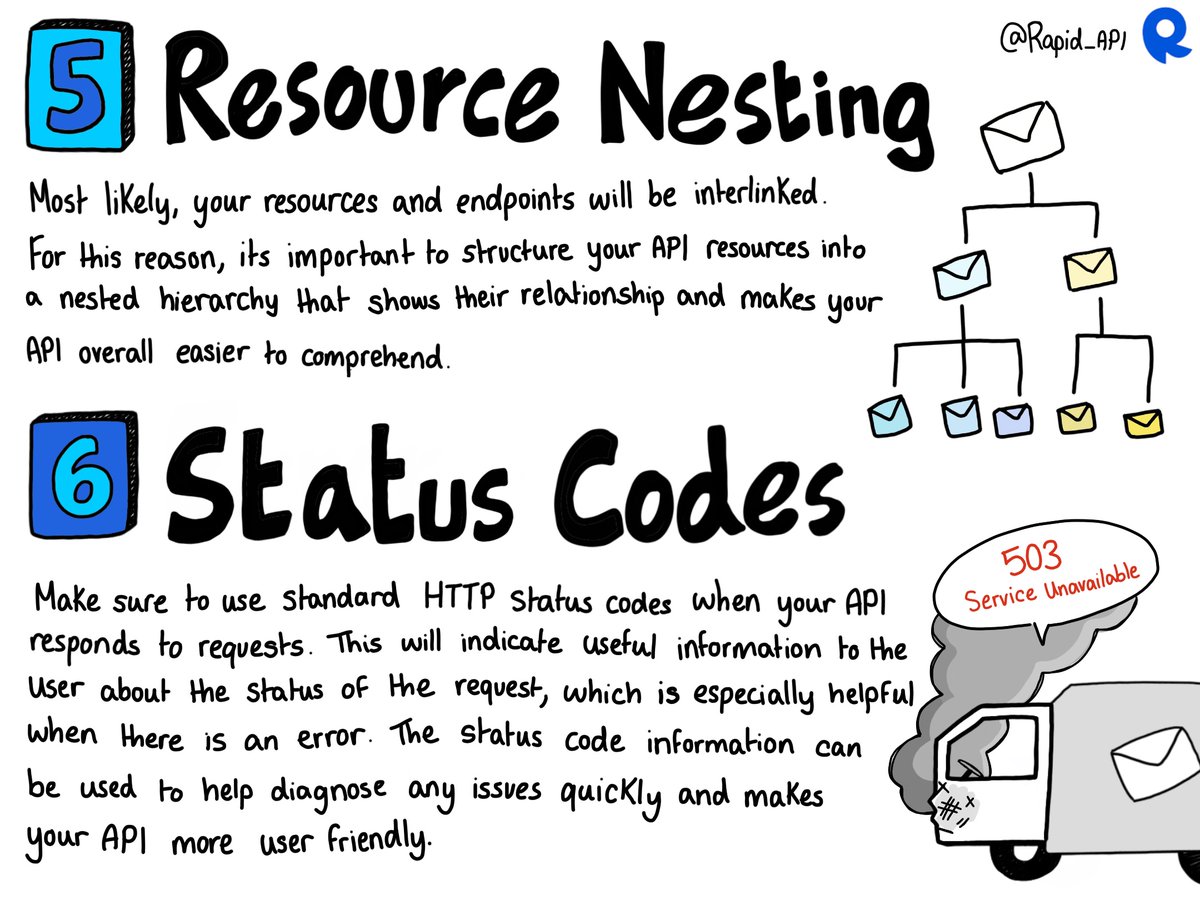 @Rapid_API
5 Resource Nesting
Most likely, your resources and endpoints will be interlinked.
For this reason, its important to structure your API resources into
a nested hierarchy that shows their relationship and makes your
API overall easier to comprehend.
6 Status Codes
503
Service Unavailable
Make sure to use standard HTTP status codes when your API
responds to requests. This will indicate useful information to the
user about the status of the request, which is especially helpful
when there is an error. The status code information can
be used to help diagnose any issues quickly and makes
your API more user friendly.